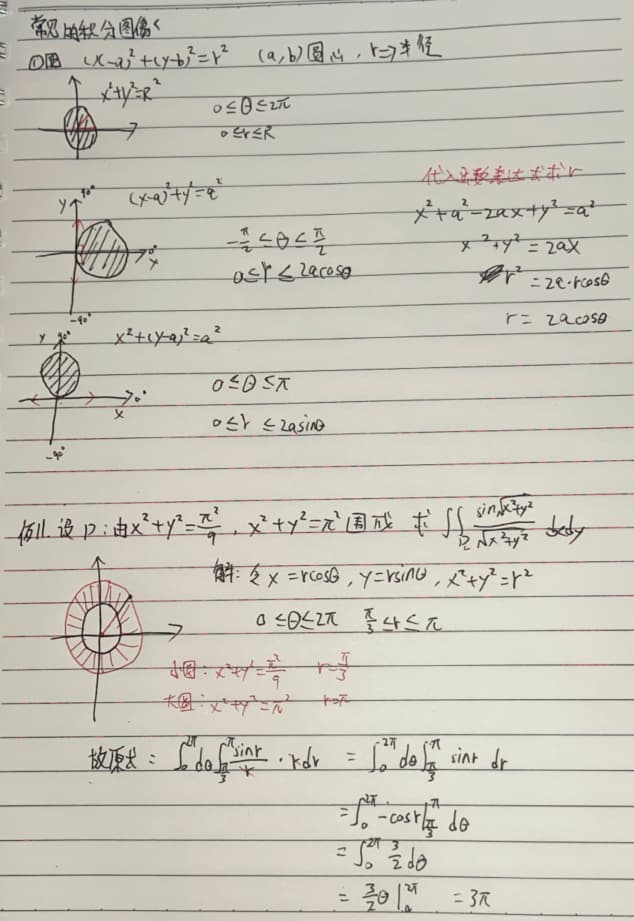 常见的积分图像
①圆 (x-a)²+(y-b)²=r² (a,b)圆心, r→半径
x²+y²=R²
0≤θ≤2π
0≤r≤R
代入函数表达式求r
90°
(x-a)²+y²=a²
y
x²+a²-2ax+y²=a²
-π/2≤θ≤π/2
0°
x
x²+y²=2ax
0≤r≤2acosθ
r²=2a·rcosθ
-90°
r=2acosθ
y 90° x²+(y-a)²=a²
0≤θ≤π
0°
x
0≤r≤2asinθ
-90°
例1. 设D:由x²+y²=π²/9, x²+y²=π²围成 求∬_D sin√(x²+y²)/√(x²+y²) dxdy
解:令x=rcosθ, y=rsinθ, x²+y²=r²
0≤θ≤2π π/3≤r≤π
小圆:x²+y²=π²/9 r=π/3
大圆:x²+y²=π² r=π
故原式=∫₀^2π dθ∫_π/3^π sinr/r·rdr =∫₀^2π dθ∫_π/3^π sinr dr
=∫₀^2π -cosr|_π/3^π dθ
=∫₀^2π 3/2 dθ
=3/2θ|₀^2π =3π